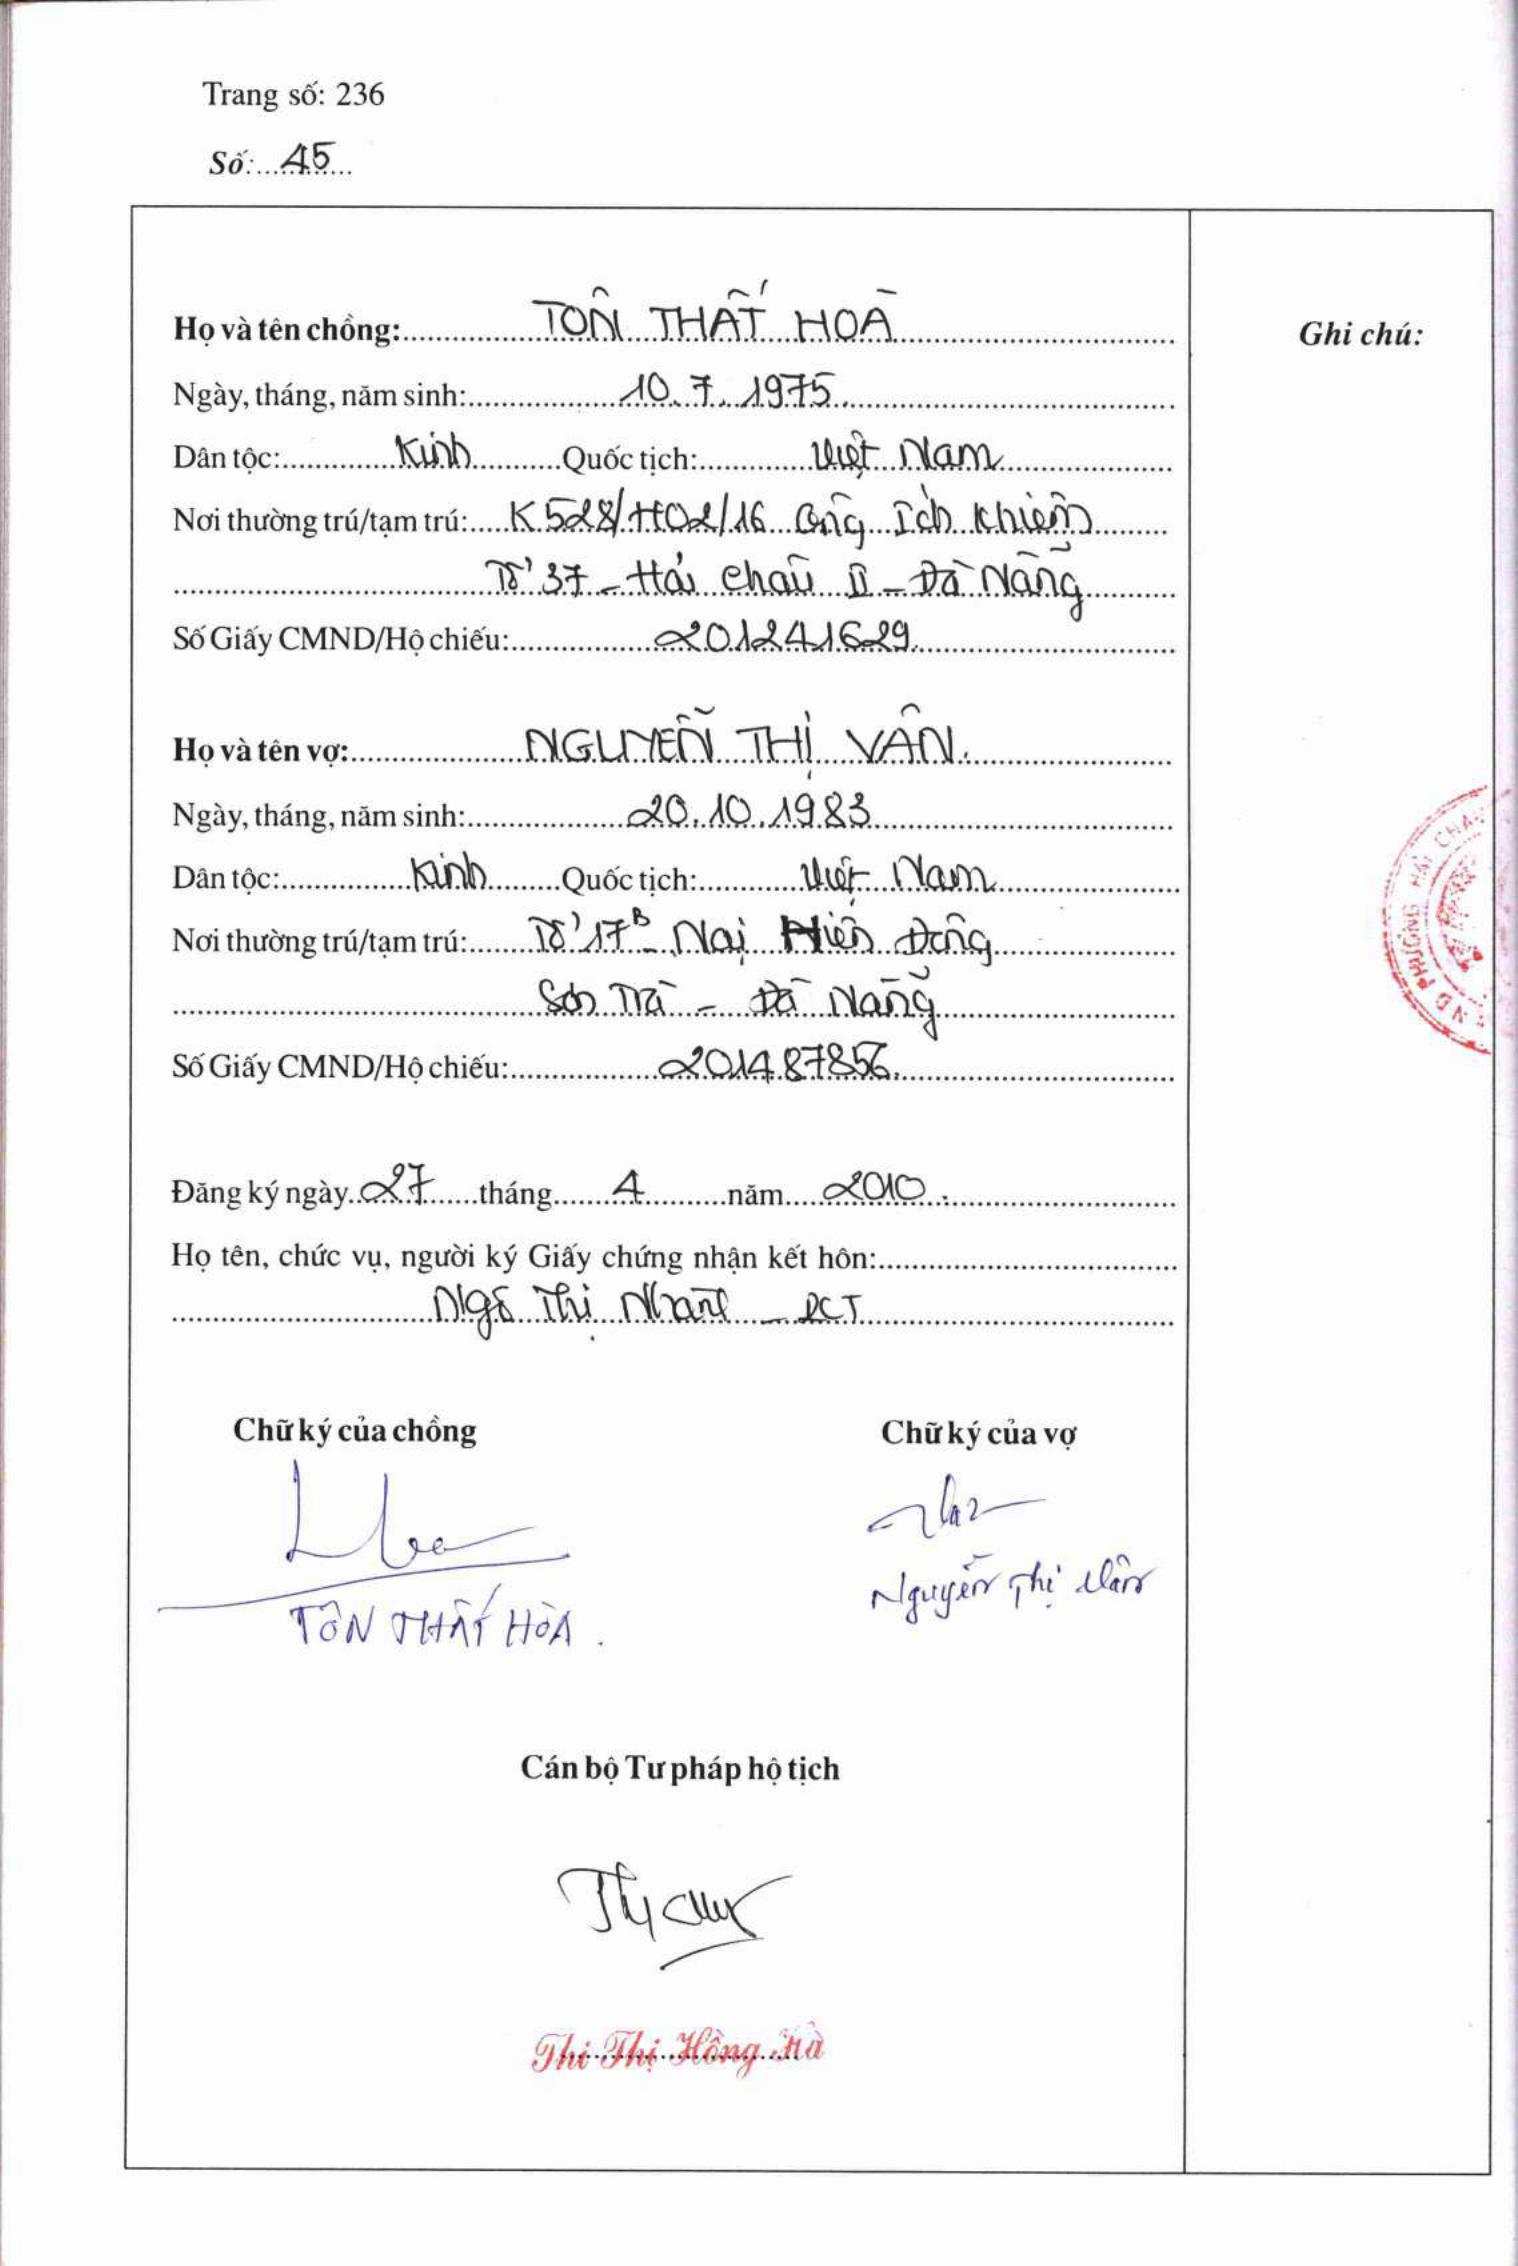 Trang số: 236
Số: 45
Họ và tên chồng: TÔN THẤT HOÀ
Ghi chú:
Ngày, tháng, năm sinh: 10.7.1975.
Dân tộc: Kinh Quốc tịch: Việt Nam
Nơi thường trú/tạm trú: K528/H02/16 Ông Ích Khiêm
Tổ 37 - Hải Châu II - Đà Nẵng
Số Giấy CMND/Hộ chiếu: 201241629.
Họ và tên vợ: NGUYỄN THỊ VÂN.
Ngày, tháng, năm sinh: 20.10.1983
Dân tộc: Kinh Quốc tịch: Việt Nam
Nơi thường trú/tạm trú: Tổ 17B - Nại Hiên Đông
Sơn Trà - Đà Nẵng
Số Giấy CMND/Hộ chiếu: 201487856.
Đăng ký ngày 27 tháng 4 năm 2010.
Họ tên, chức vụ, người ký Giấy chứng nhận kết hôn:
Ngô Thị - PCT
Chữ ký của chồng Chữ ký của vợ
TÔN THẤT HÒA. Nguyễn Thị Vân
Cán bộ Tư pháp hộ tịch
Thi Thị Hồng Hà
PHƯỜNG HẢI CHÂU